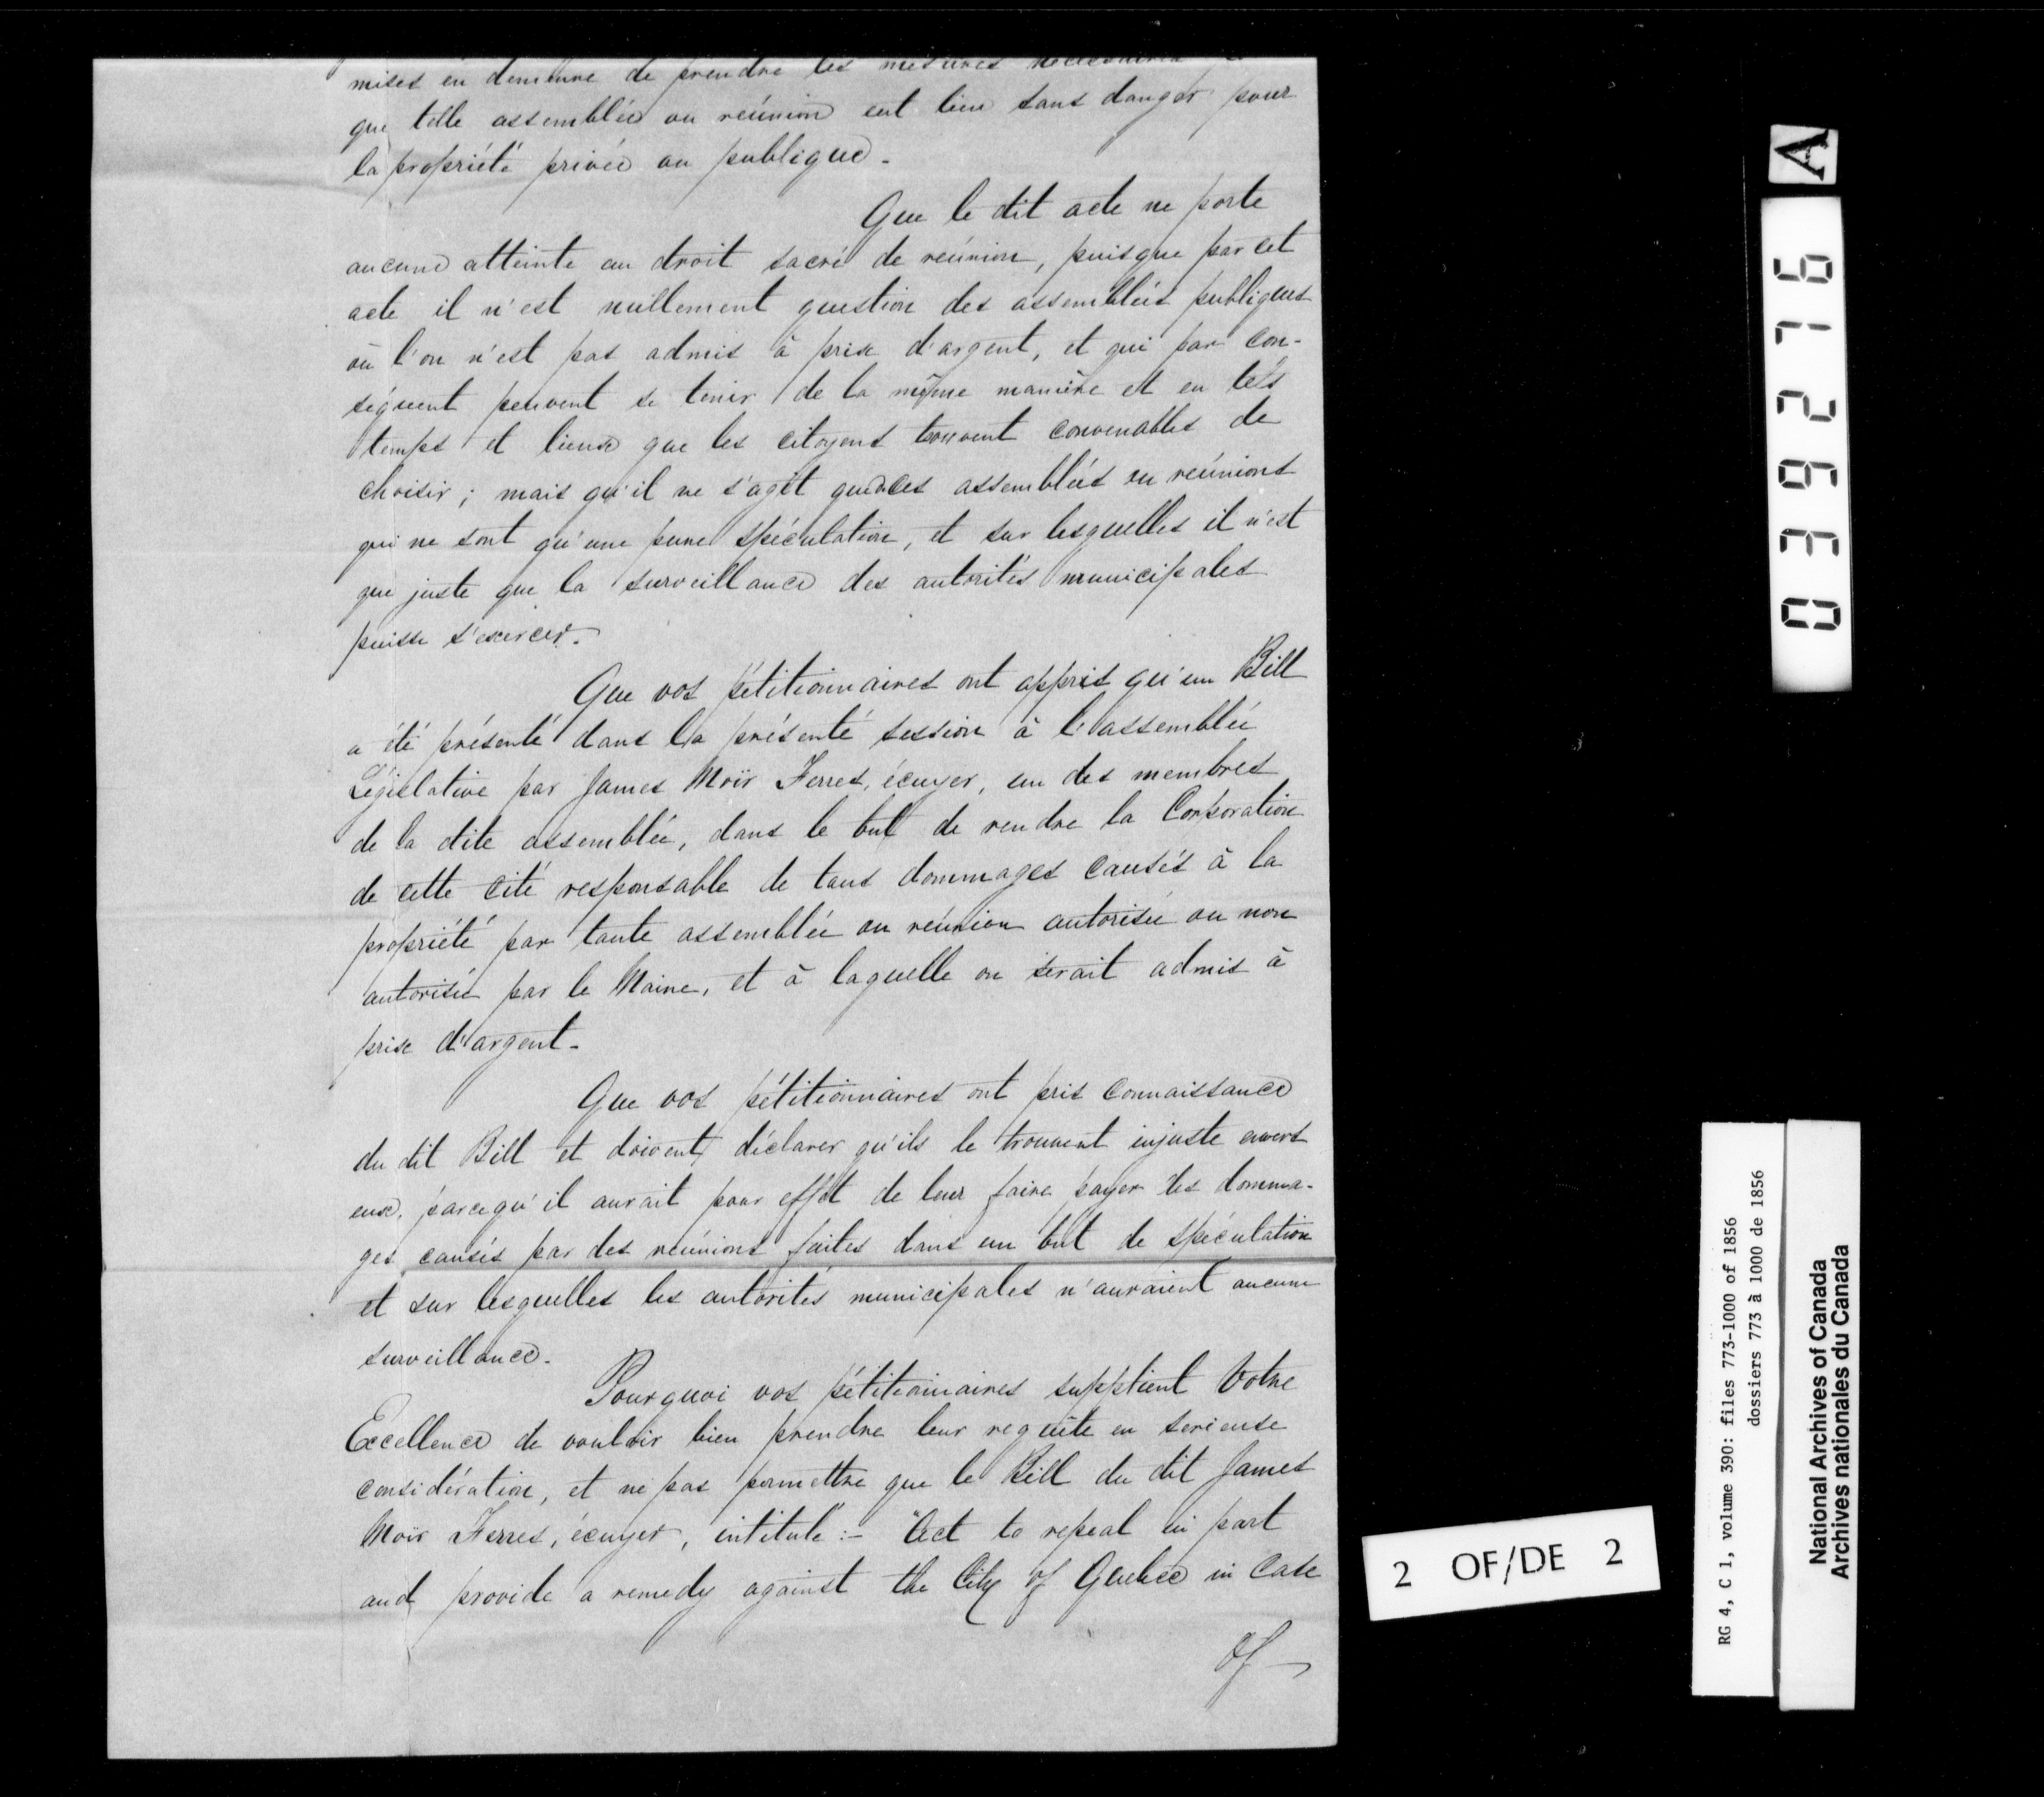 mises en demeure de prendre les mesures nécessaires
que telle assemblée ou reúnion eut lieu sans danger pour
la propriété privée ou publique.
Que le dit acte ne porte
aucune atteinte au droit sacré de reúnion, puisque par cet
acte il n'est nullement question des assembleés publiques
où l'on n'est pas admis à prise d'argent, et qui par con-
séquent peuvent se tenir de la même manière et en tels
temps et lieux que les citoyens trouvent convenables de
choisir ; mais qu'il ne s'agit que des assembleés ou reúnions
qui ne sont qu'une pure spéculation, et sur lesquelles il n'est
que juste que la surveillance des autorités municipales
puisse s'exercer.
Que vos pétitionnaires ont appris qu'un Bill
a été présenté dans la présente session à l'assemblée
Législative par James Moïr Ferres, écuyer, un des membres
de la dite assemblée, dans le but de rendre la Corporation
de cette cité responsable de tous dommages causés à la
propriété par toute assemblée ou reúnion autorisée ou non
autorisée par le Maire, et à laquelle on serait admis à
prise d'argent.
Que vos pétitionnaires ont pris connaissance
du dit Bill et doivent déclarer qu'ils le trouvent injuste envers
eux, parcequ'il aurait pour effet de leur faire payer les domma-
ges causés par des reúnions faites dans un but de spéculation
et sur lesquelles les autorités municipales n'auraient aucune
surveillance.
Pourquoi vos pétitionnaires supplient Votre
Excellence de vouloir bien prendre leur requête en serieuse
considération, et ne pas permettre que le Bill du dit James
Moïr Ferres, écuyer, intitulé :- "Act to repeal in part
and provide a remedy against the City of Quebec in Case
of
A
0 3 9 2 7 6
2 OF/DE 2
RG 4, C 1, volume 390: files 773-1000 of 1856
dossiers 773 à 1000 de 1856
National Archives of Canada
Archives nationales du Canada